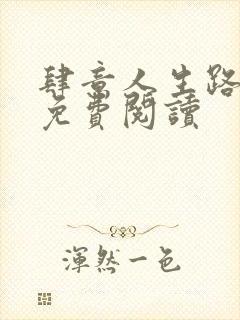 肆意人生路
免費閱讀
渾然一色